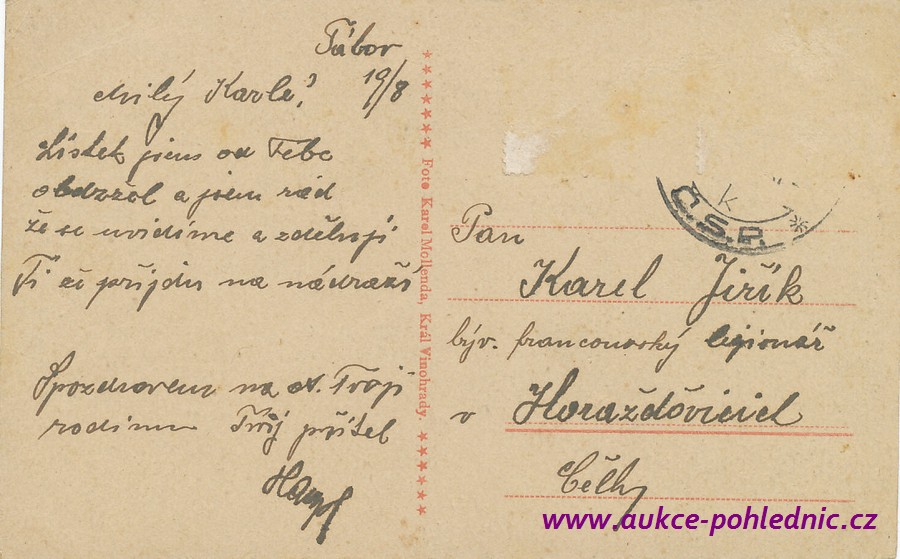 Tábor
19/8
Milý Karle!
Lístek jsem od Tebe
obdržel a jsem rád
že se uvidíme a zděluji
Ti že přijdu na nádraží
Spozdravem na Tvoji
rodinu Tvůj přítel
★★★★★★★ Foto Karel Mollenda, Král Vinohrady. ★★★★★★
Č.S.P.
Pan
Karel Jiřík
býv. francouzský legionář
v Horažďovicích
Čechy
www.aukce-pohlednic.cz